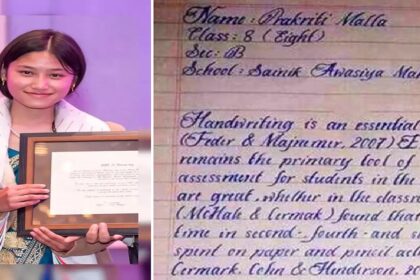 Name: Prakriti Malla
Class: 8 (Eight)
Sec: B
School: Sainik Awasiya Ma
Handwriting is an essential
(Feder & Majnemer, 2007) E
remains the primary tool of
assessment for students in the
are great, whether in the classro
(McHale & Cermak) found that
time in second- fourth- and s
spent on paper and pencil act
Cermark, Cohn & Hundirson,